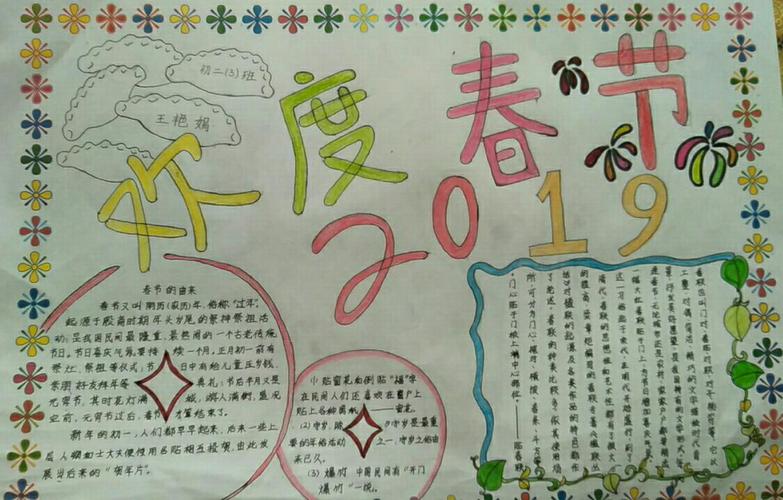 初二(3)班
王艳嫣
欢度春节
2019
春节的由来
春节又叫阴历(农历)年,俗称“过年”。
起源于殷商时期年头岁尾的祭神祭祖活
动,是我国民间最隆重、最热闹的一个古老传统
节日。节日喜庆气氛要持续一个月。正月初一前有
祭灶、祭祖等仪式;节日中有给儿童压岁钱、
亲朋好友拜年等典礼;节后半月又是
元宵节,其时花灯满城,游人满街,盛况
空前,元宵节过后,春节才算结束了。
新年的初一,人们都早早起来,后来一些上
层人物如士大夫便使用名贴相互投贺,由此发
展出后来的“贺年片”。
(1)贴窗花和倒贴“福”字
在民间人们还喜欢在窗户上
贴上各种剪纸——窗花。
(2)守岁,除夕守岁是最重
要的年俗活动之一,守岁之俗由
来已久。
(3)爆竹 中国民间有“开门
爆竹”一说。
春联也叫门对、春贴、对联、对子、桃符等,它以
工整、对偶、简洁、精巧的文字描绘时代背
景,抒发美好愿望,是我国特有的文学形式。每
逢春节,无论城市还是农村,家家户户都要精选
一幅大红春联贴于门上,为节日增加喜庆气氛。
这一习俗起于宋代,在明代开始盛行,到了
清代,春联的思想性和艺术性都有了很大
的提高,梁章矩编写的春联专著《楹联丛
话》对楹联的起源及各类作品的特色都作
了论述。春联的种类比较多,依其使用场
所,可分为门心、框对、横披、春条、斗方等
“门心”贴于门板上端中心部位。——贴春联